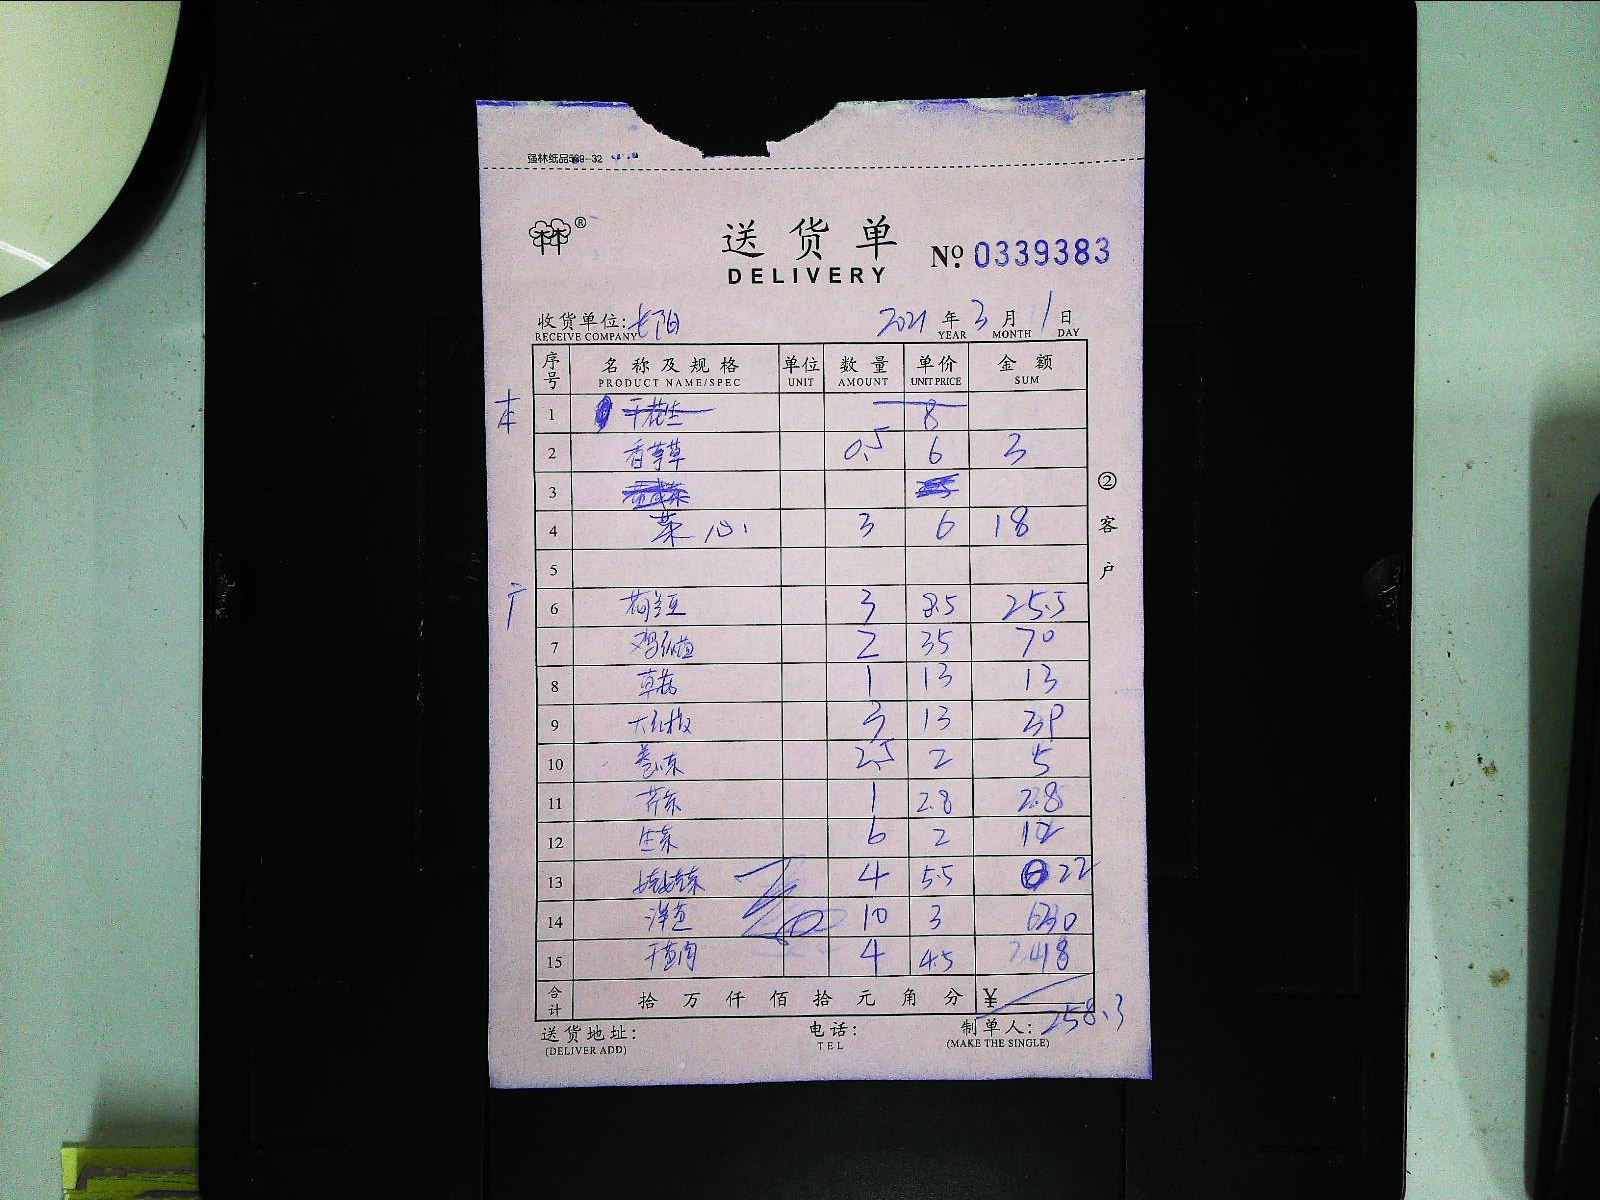 强林纸品569-32
林®
送货单
DELIVERY
No. 0339383
收货单位: 七阳 2021 年 3 月 1 日
RECEIVE COMPANY YEAR MONTH DAY
序号 名称及规格 单位 数量 单价 金额
PRODUCT NAME/SPEC UNIT AMOUNT UNIT PRICE SUM
本 1 干花生 8
2 香芋草 0.5 6 3
3
4 菜心 3 6 18
5
广 6 荷兰豆 3 8.5 25.5
7 2 35 70
8 草菇 1 13 13
9 大红椒 3 13 39
10 2.5 2 5
11 芹菜 1 2.8 2.8
12 生菜 6 2 12
13 娃娃菜 4 5.5 22
14 洋芋 10 3 30
15 4 4.5 18
合计 拾万仟佰拾元角分 ¥ 258.3
送货地址: 电话: 制单人:
(DELIVER ADD) TEL (MAKE THE SINGLE)
② 客户